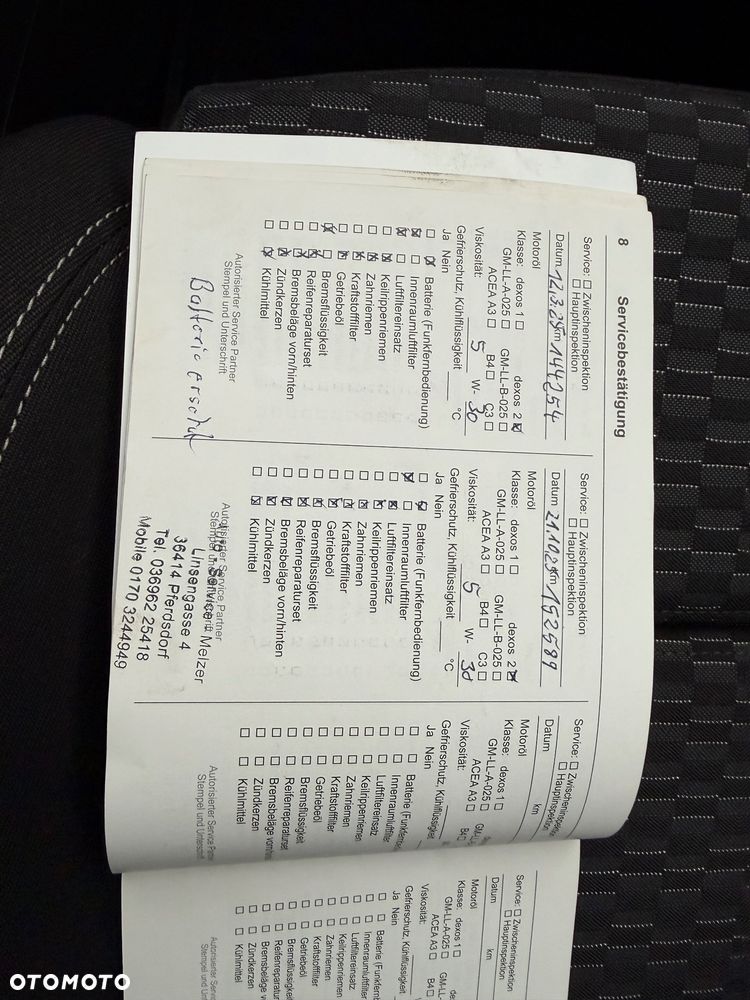 8 Servicebestätigung
Service: ☐ Zwischeninspektion
☐ Hauptinspektion
Datum 12.3.25 km 144254
Motoröl
Klasse: dexos 1 ☐ dexos 2 ☒
GM-LL-A-025 ☐ GM-LL-B-025 ☐
ACEA A3 ☐ B4 ☐ C3 ☐
Viskosität: 5 W- 30
Gefrierschutz, Kühlflüssigkeit °C
Ja Nein
☐ ☒ Batterie (Funkfernbedienung)
☒ ☐ Innenraumluftfilter
☒ ☐ Luftfiltereinsatz
☐ ☒ Keilrippenriemen
☐ ☒ Zahnriemen
☐ ☒ Kraftstofffilter
☐ ☒ Getriebeöl
☒ ☐ Bremsflüssigkeit
☐ ☒ Reifenreparaturset
☐ ☒ Bremsbeläge vorn/hinten
☐ ☒ Zündkerzen
☐ ☒ Kühlmittel
Autorisierter Service Partner
Stempel und Unterschrift
Batterie
Service: ☐ Zwischeninspektion
☐ Hauptinspektion
Datum 21.10.25 km 152589
Motoröl
Klasse: dexos 1 ☐ dexos 2 ☒
GM-LL-A-025 ☐ GM-LL-B-025 ☐
ACEA A3 ☐ B4 ☐ C3 ☐
Viskosität: 5 W- 30
Gefrierschutz, Kühlflüssigkeit °C
Ja Nein
☐ ☒ Batterie (Funkfernbedienung)
☒ ☐ Innenraumluftfilter
☐ ☒ Luftfiltereinsatz
☐ ☒ Keilrippenriemen
☐ ☒ Zahnriemen
☐ ☒ Kraftstofffilter
☐ ☒ Getriebeöl
☐ ☒ Bremsflüssigkeit
☐ ☒ Reifenreparaturset
☐ ☒ Bremsbeläge vorn/hinten
☐ ☒ Zündkerzen
☐ ☒ Kühlmittel
Autorisierter Service Partner
Stempel und Unterschrift
Service Melzer
Linsengasse 4
36414 Pferdsdorf
Tel. 036962 25418
Mobile 0170 3244949
Service: ☐ Zwischeninspe
☐ Hauptinspektion
Datum km
Motoröl
Klasse: dexos 1 ☐
GM-LL-A-025 ☐ GM
ACEA A3 ☐ B4
Viskosität:
Gefrierschutz, Kühlflüssigkeit
Ja Nein
☐ ☐ Batterie (Funkfernbe
☐ ☐ Innenraumluftfilter
☐ ☐ Luftfiltereinsatz
☐ ☐ Keilrippenriemen
☐ ☐ Zahnriemen
☐ ☐ Kraftstofffilter
☐ ☐ Getriebeöl
☐ ☐ Bremsflüssigkeit
☐ ☐ Reifenreparaturset
☐ ☐ Bremsbeläge vorn/hinte
☐ ☐ Zündkerzen
☐ ☐ Kühlmittel
Autorisierter Service Partne
Stempel und Unterschrif
Service: ☐ Zwischeninspektion
☐ Hauptinspektion
Datum km
Motoröl
Klasse: dexos 1 ☐
GM-LL-A-025 ☐ GM-L
ACEA A3 ☐ B4
Viskosität:
Gefrierschutz, Kühlflüssigkeit
Ja Nein
☐ ☐ Batterie (Funkfernb
☐ ☐ Innenraumluftfilter
☐ ☐ Luftfiltereinsatz
☐ ☐ Keilrippenriemen
☐ ☐ Zahnriemen
☐ ☐ Kraftstofffilter
☐ ☐ Getriebeöl
☐ ☐ Bremsflüssigkeit
☐ ☐ Reifenreparaturset
☐ ☐ Bremsbeläge vorn
☐ ☐ Zündkerzen
☐ ☐ Kühlmittel
Autorisierter Service
Stempel und Unt
OTOMOTO